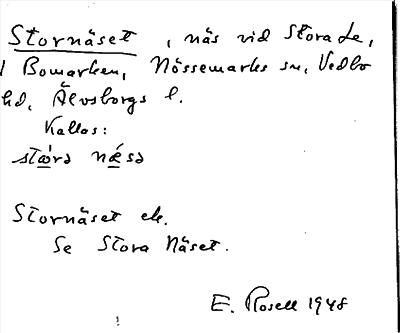 Stornäset, näs vid Stora Le,
i Bomarken, Nössemarks sn, Vedbo
hd, Älvsborgs l.
Kallas:
stǽrə nǽsə
Stornäset ek.
Se Stora Näset.
E. Rosell 1948